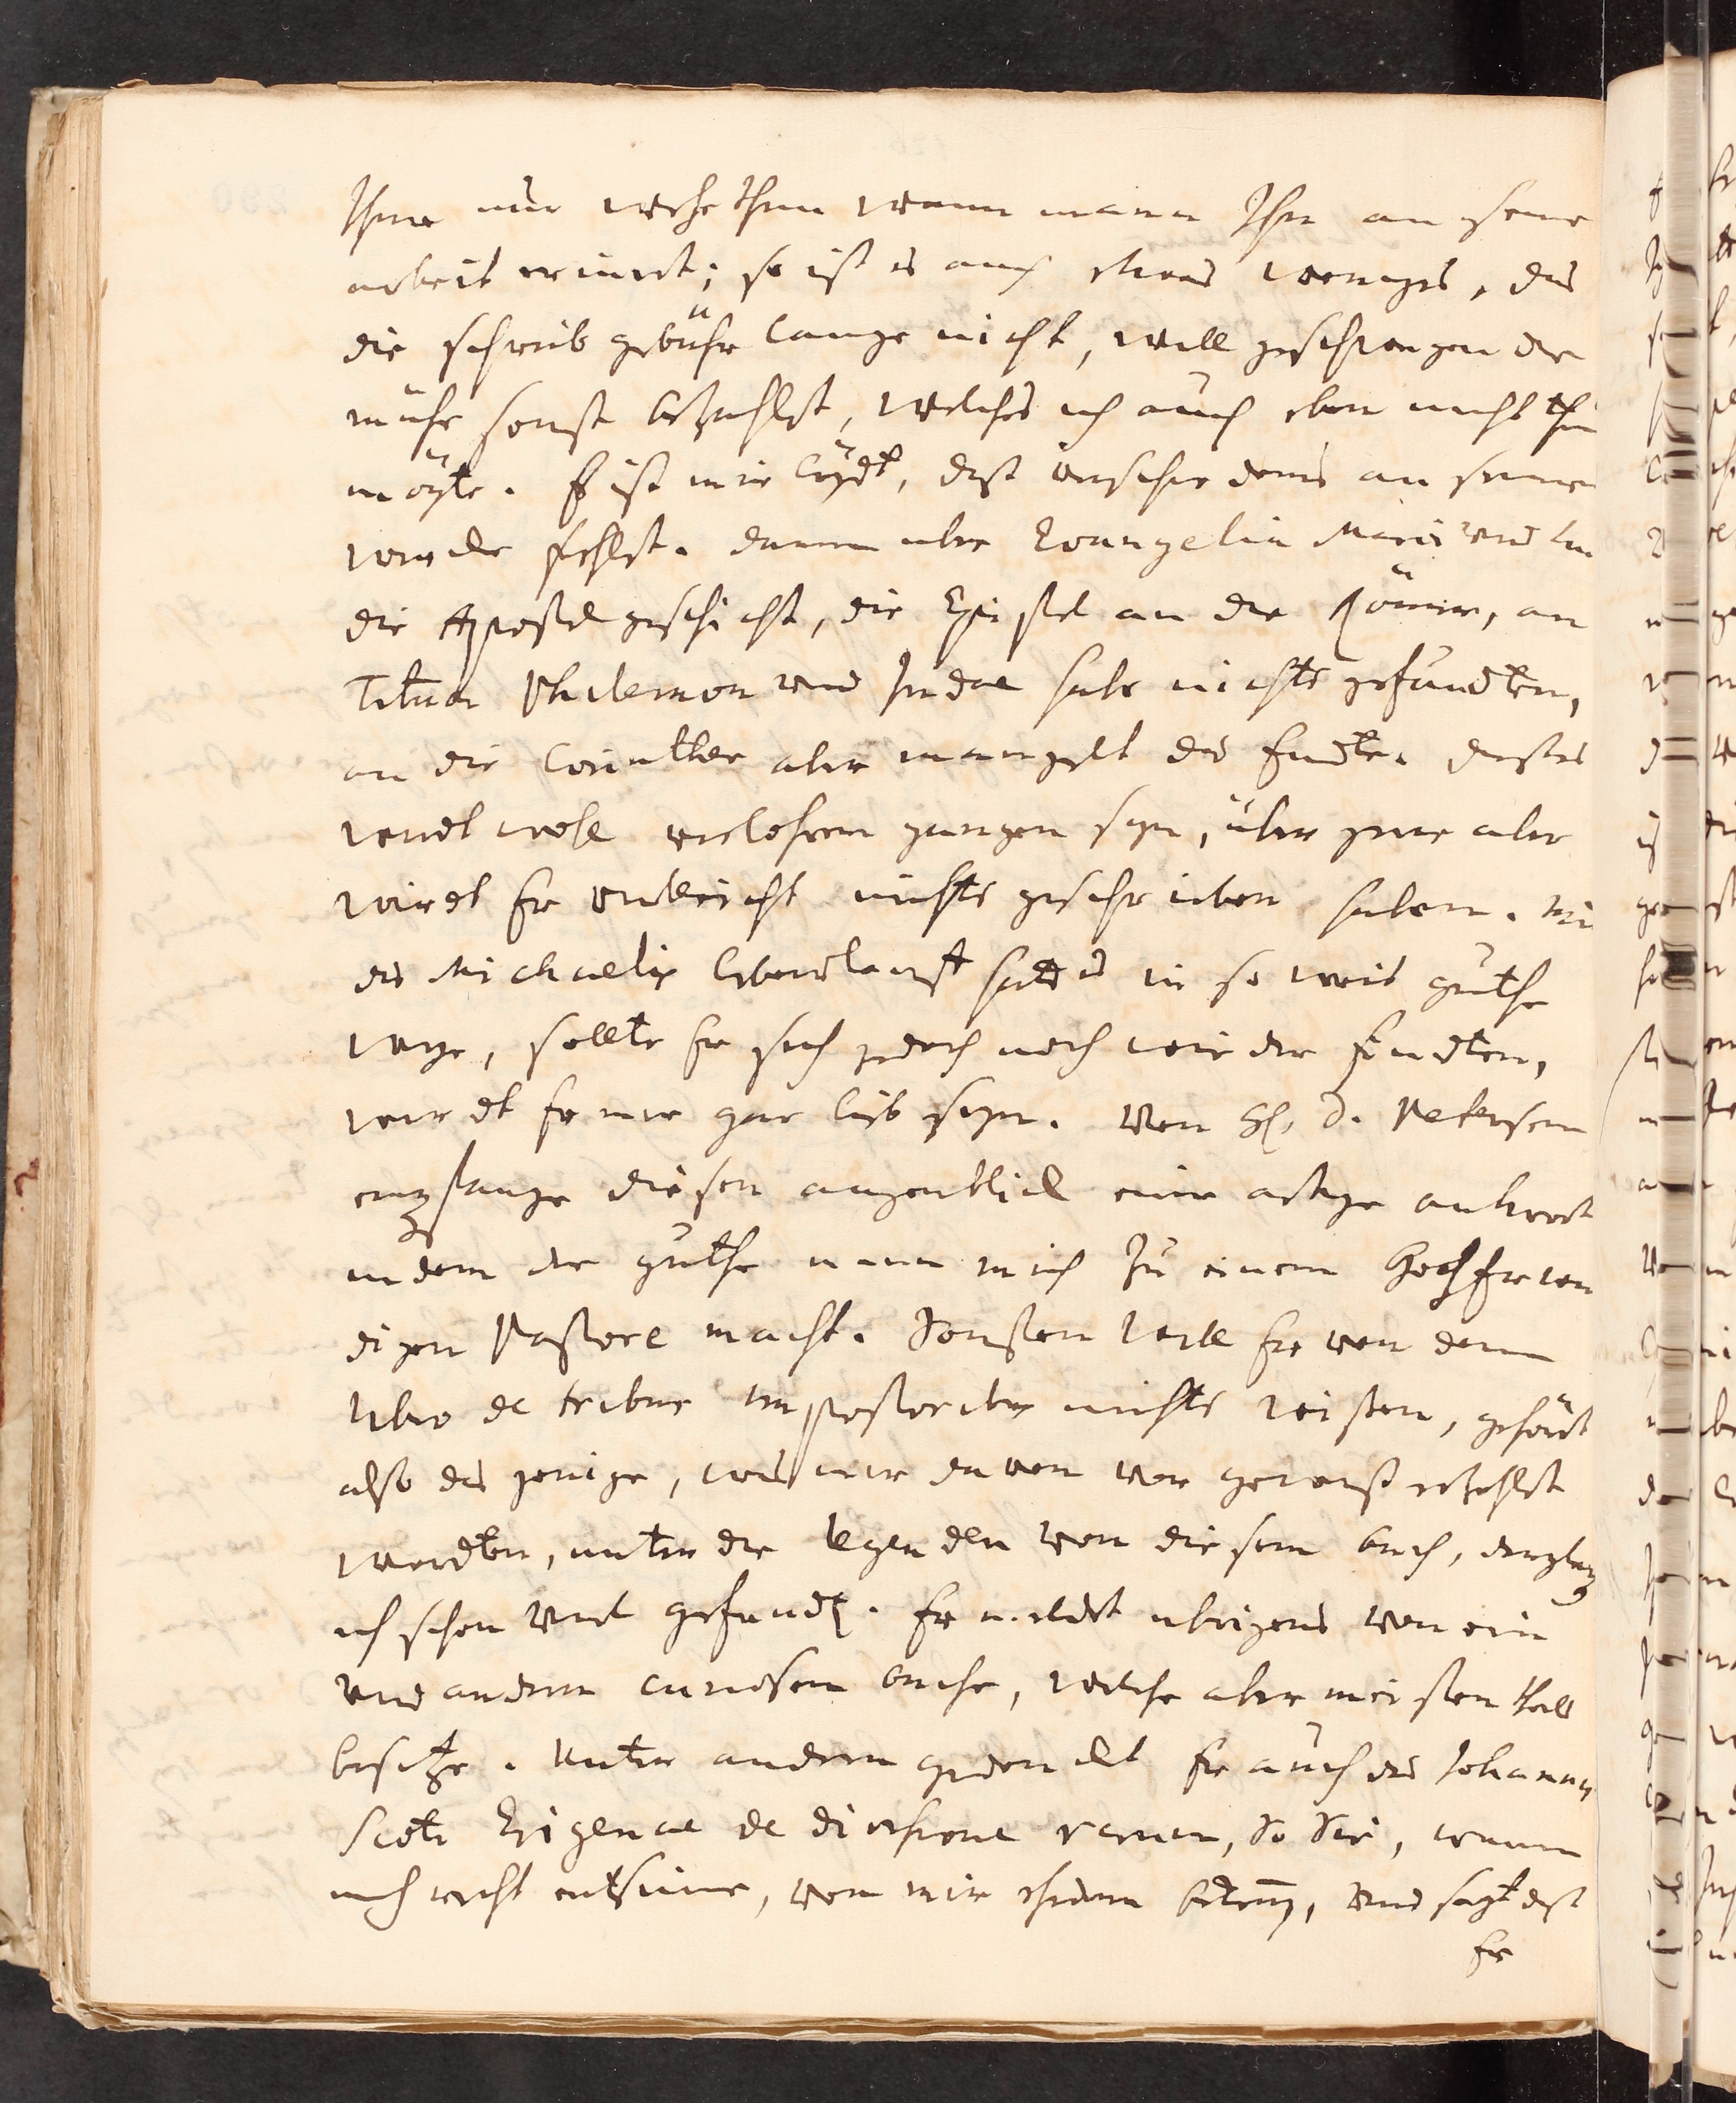 Ihm nur wehe thun wann mann Ihn an seine
arbeit erinnert; so ist es auch etwas weniges, das
die schreib gebühr lange nicht, will geschweigen die
mühe sonst bezahlet, welches ich auch eben nicht thun
mögte. Es ist mir leydt, dass verschiedenes an seinem
wercke fehlet. dann über Evangelia Marci und Luc
die Apostelgeschicht, die Epistel an die Römer, an
Titum Philemon und Judae habe nichts gefundten,
an die Corinther aber mangelt das Endte. dieses
wirdt wohl verlohren gangen seyn, über jene aber
wirdt Er vielleicht nichts geschrieben haben. Mit
des Michaelis lebenslauff hatt es in so weit guthe
wege, sollte Er sich jedoch noch wieder findten,
wirdt Er mir gar lieb seyn. Von H. D. Petersen
empfange diesen augenblick eine artige antwort
indem der guthe mann mich zu einem Hochehrwür
digen Pastore macht. Sonsten will Er von dem
libro de tribus impostoribus nichts wissen, gehöret
also das jenige, was mir davon vor gewiss erzehlet
werdten, unter die legenden von diesem buch, dergleich
ich schon viel gefundt. Er meldet übrigens von ein
und andern curiosen buche, welche aber meistentheils
besitze. Unter andern gedencket Er auch des Johannis
Scoti Erigenae de divisione rerum, so Sie, wann
mich recht entsinne, von mir ehedem bekomm, und sagt dass
Er